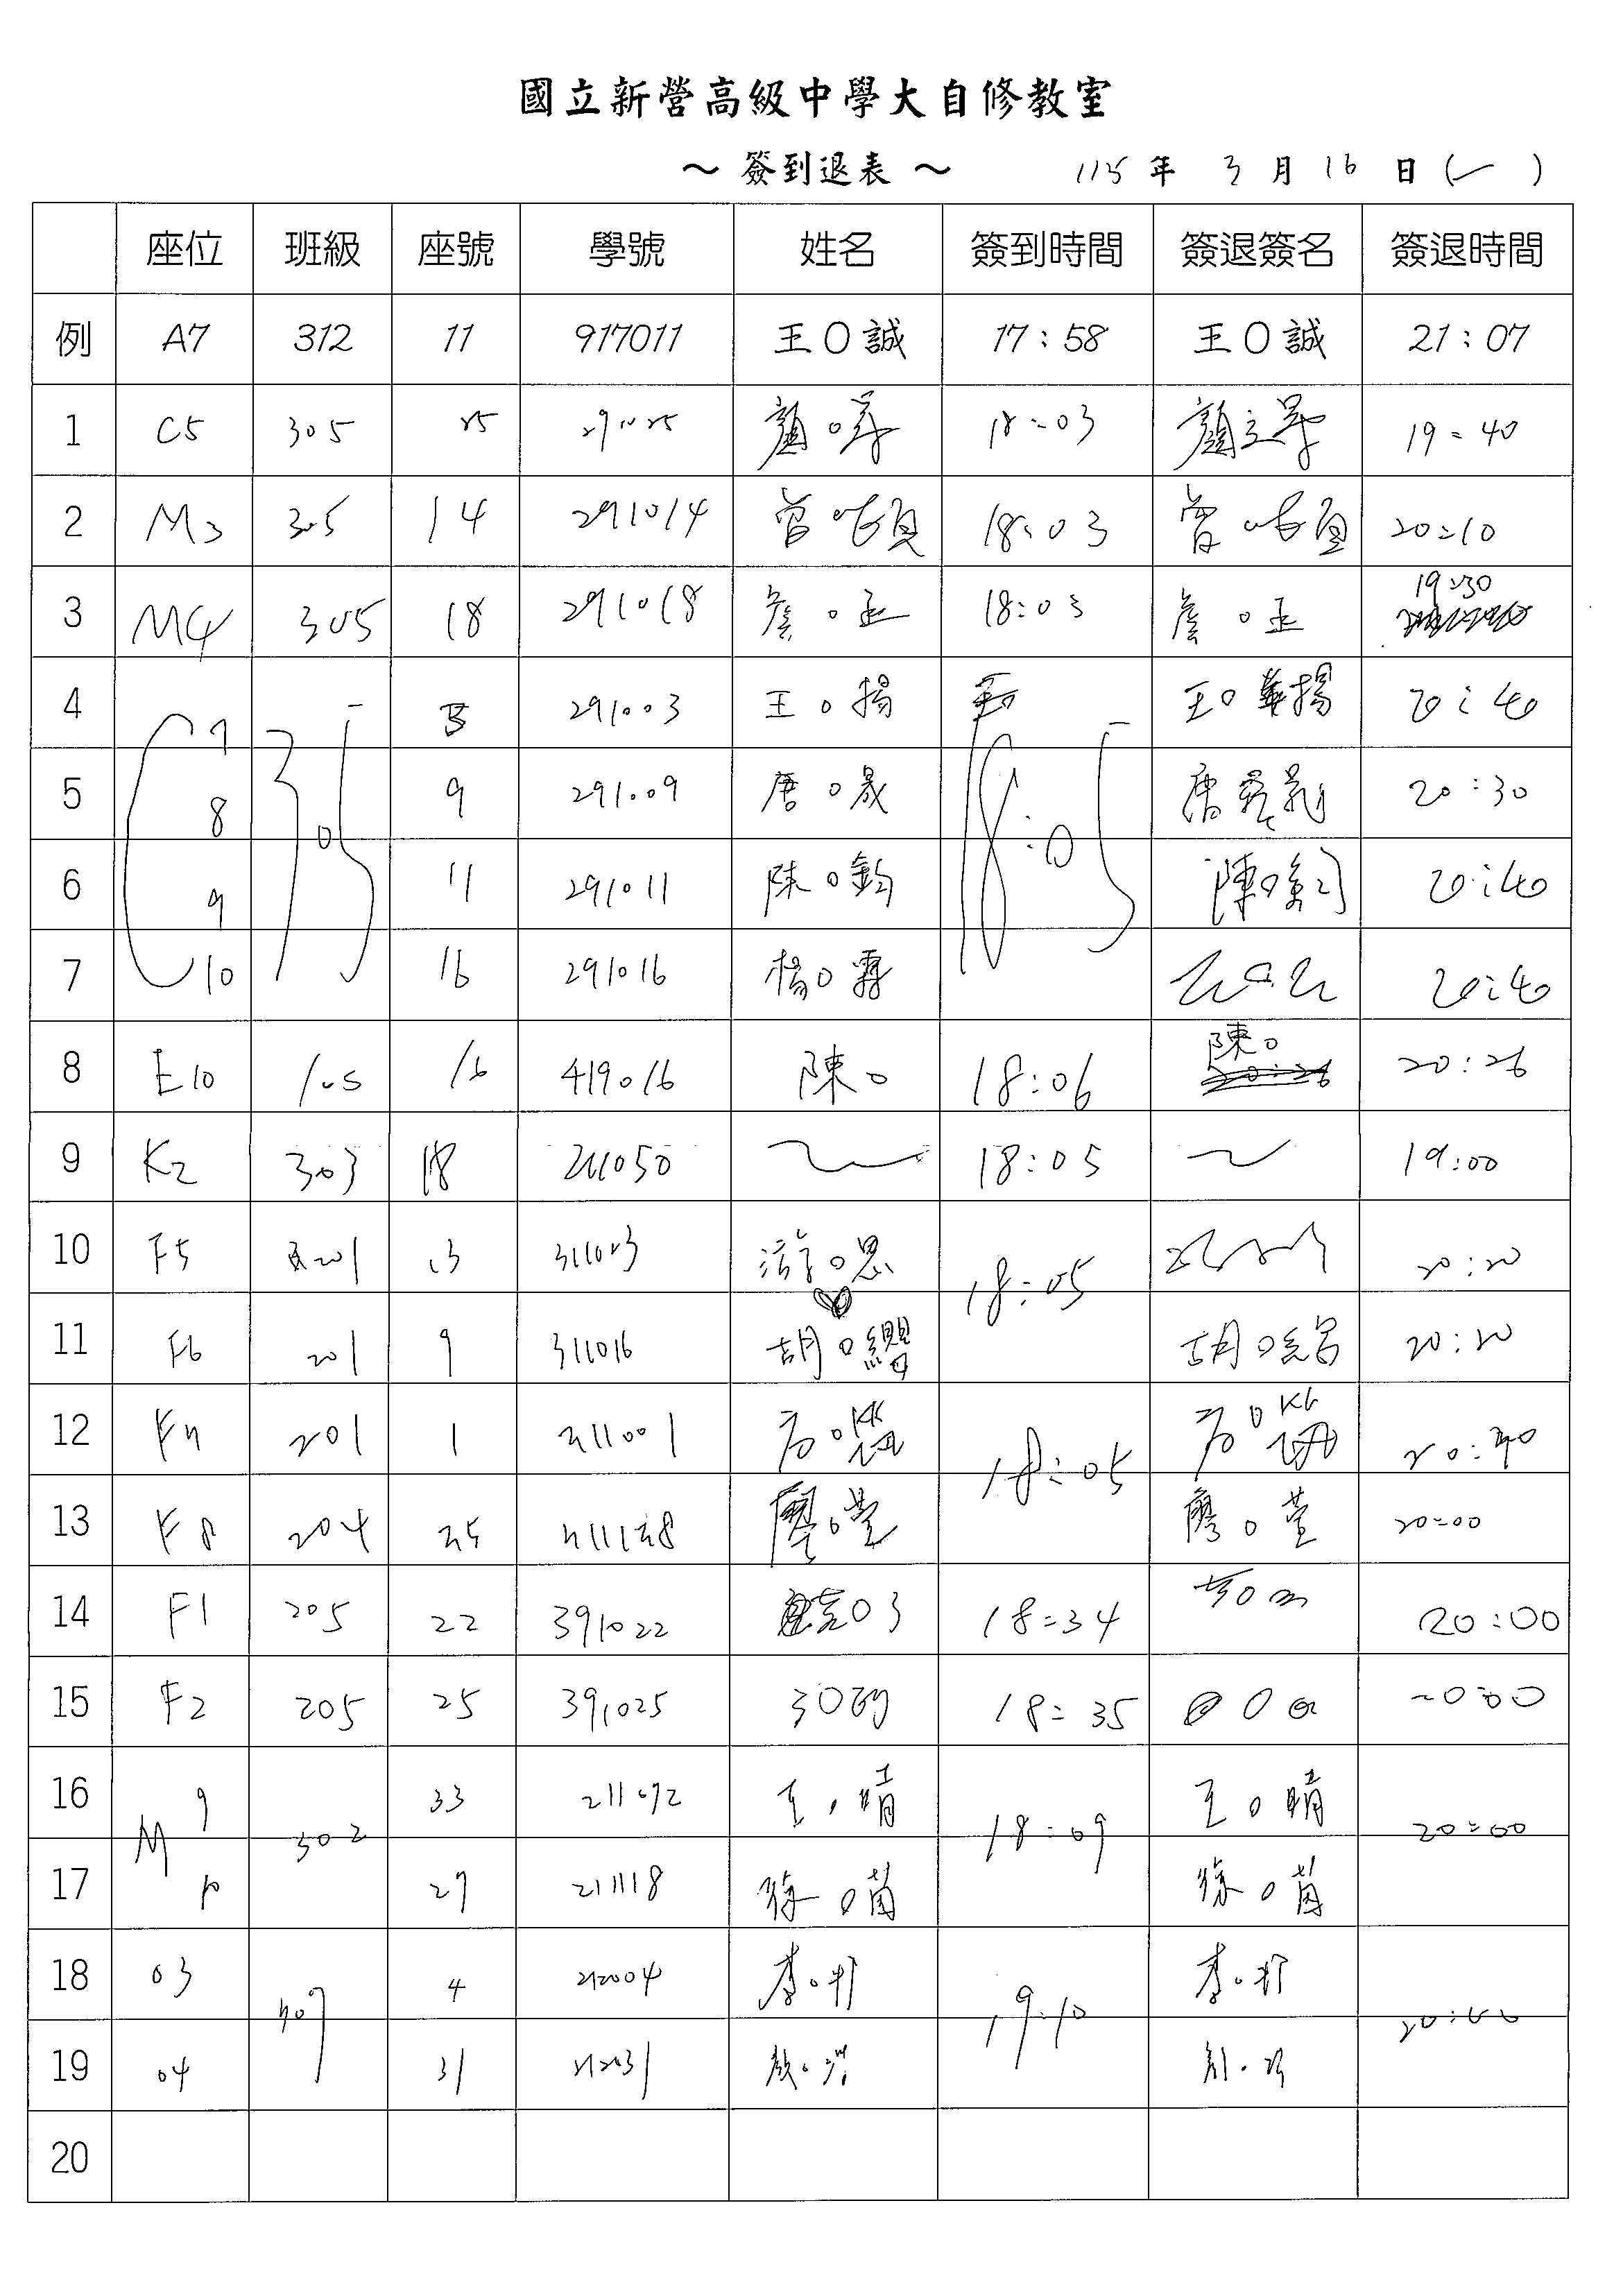 國立新營高級中學大自修教室
～ 簽到退表 ～ 115 年 3 月 16 日 (一)
座位 班級 座號 學號 姓名 簽到時間 簽退簽名 簽退時間
例 A7 312 11 917011 王O誠 17:58 王O誠 21:07
1 C5 305 25 291025 顏O 18:03 顏 19:40
2 M3 305 14 291014 曾O 18:03 曾O 20:10
3 M4 305 18 291018 詹O 18:03 詹O 19:30
4 C7 305 3 291003 王O揚 18:05 王O 揚 20:40
5 8 9 291009 唐O晟 唐 20:30
6 9 11 291011 陳O鈞 陳O 20:40
7 10 16 291016 楊O霖 20:40
8 E10 105 16 419016 陳O 18:06 陳O 20:26
9 K2 303 18 211050 18:05 19:00
10 F5 201 13 311023 游O恩 18:05 20:20
11 F6 201 9 311016 胡O 胡O 20:20
12 F7 201 1 311001 18:05
13 F8 204 25 廖O萱 廖O萱 20:00
14 F1 205 22 391022 18:34 20:00
15 F2 205 25 391025 18:35 20:00
16 M 9 302 33 211072 王O晴 18:09 王O晴 20:00
17 10 27 211118 徐O茵 徐O茵
18 03 307 4 212004 李O 19:10 李O 20:00
19 04 31 212031
20